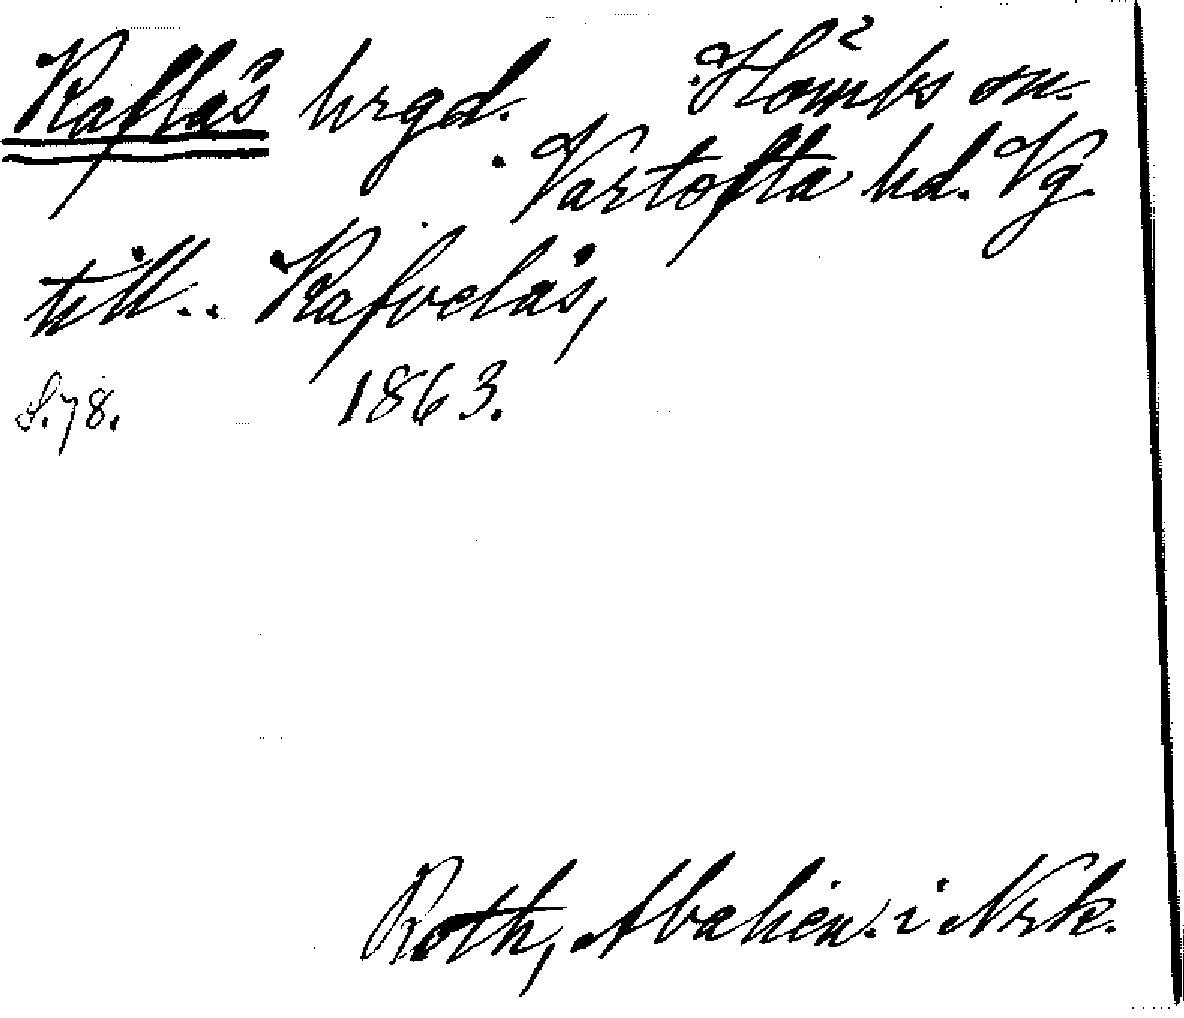 Kaflås hrgd. Hömbs sn.
Vartofta hd. Vg.
till.. Kafvelås,
S. 78. 1863.
Roth, Abalien. i Nrk.